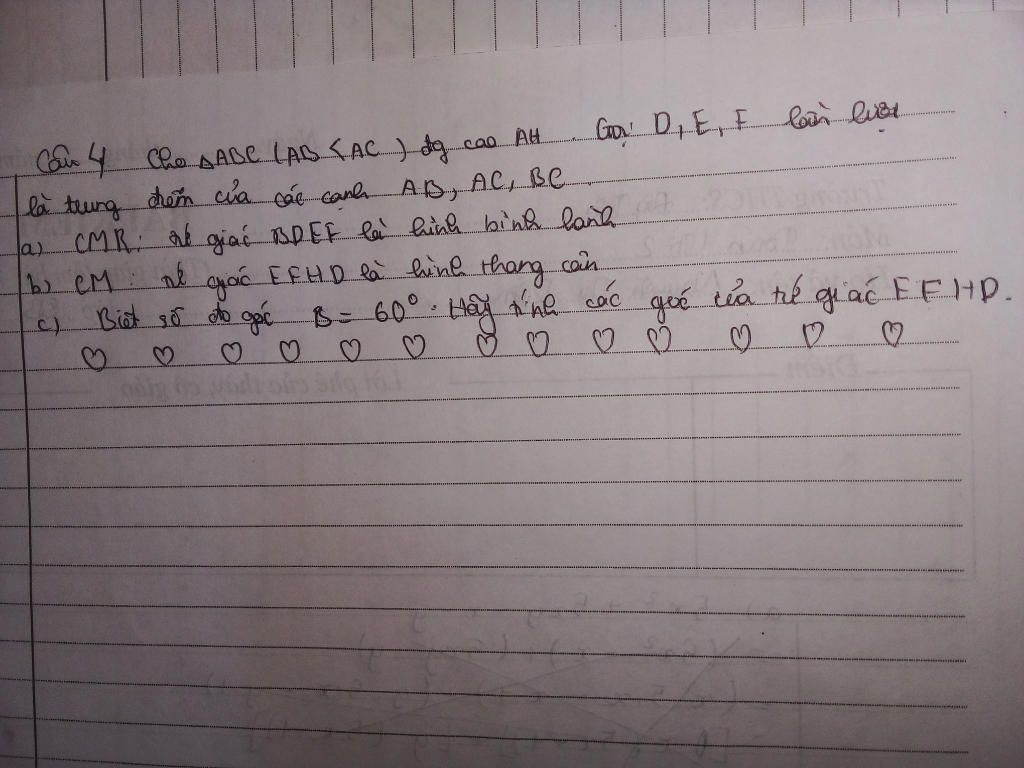 Câu 4 Cho △ABC (AB < AC) đg cao AH. Gọi D, E, F lần lượt
là trung điểm của các cạnh AB, AC, BC.
a) CMR: tứ giác BDEF là hình bình hành
b) CM: tứ giác EFHD là hình thang cân
c) Biết số đo góc B = 60°. Hãy tính các góc của tứ giác EFHD.
♡ ♡ ♡ ♡ ♡ ♡ ♡ ♡ ♡ ♡ ♡ ♡ ♡